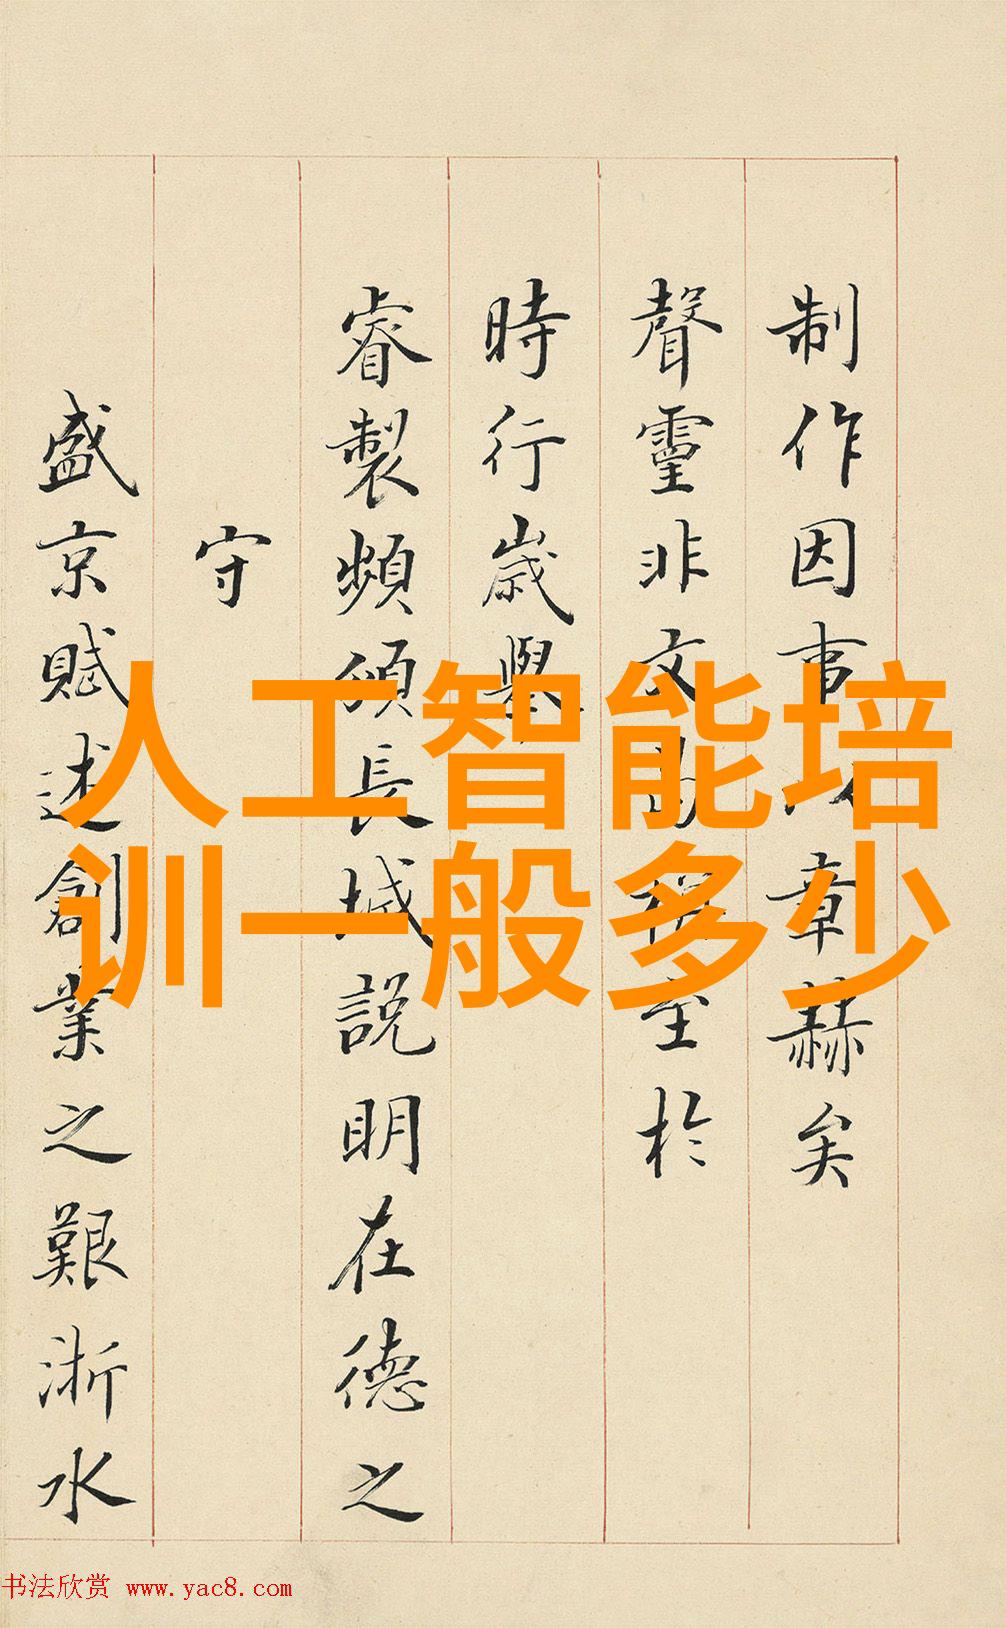 制作因事章赫矣
聲靈非文至於
時行歲舉
睿製頻頒長城說明在德之
守
盛京賦述創業之艱浙水
人工智能培
训一般多少
书法欣赏 www.yac8.com